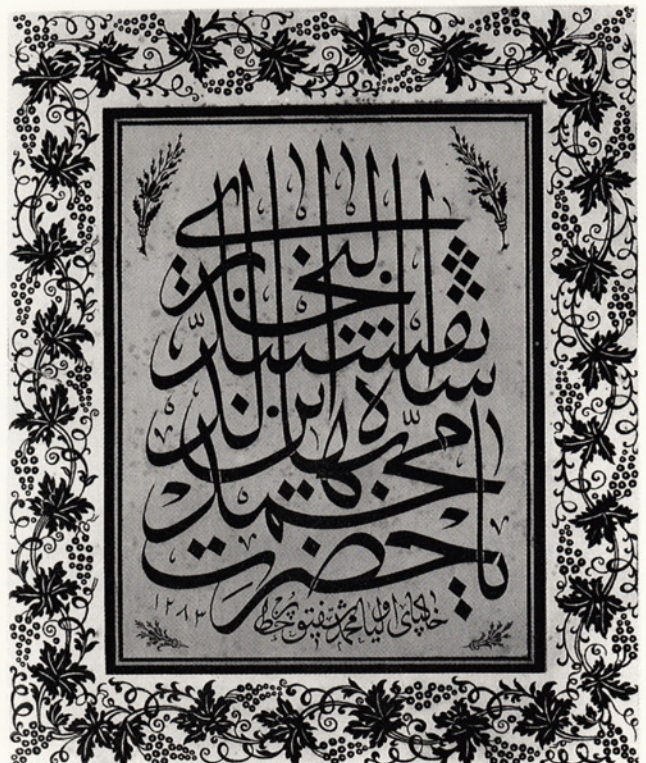 يا حضرت
محمد
بهاء الدين
شاه نقشبند
البخارى
خاكپاى اوليا محمد شفيق
١٢٨٣